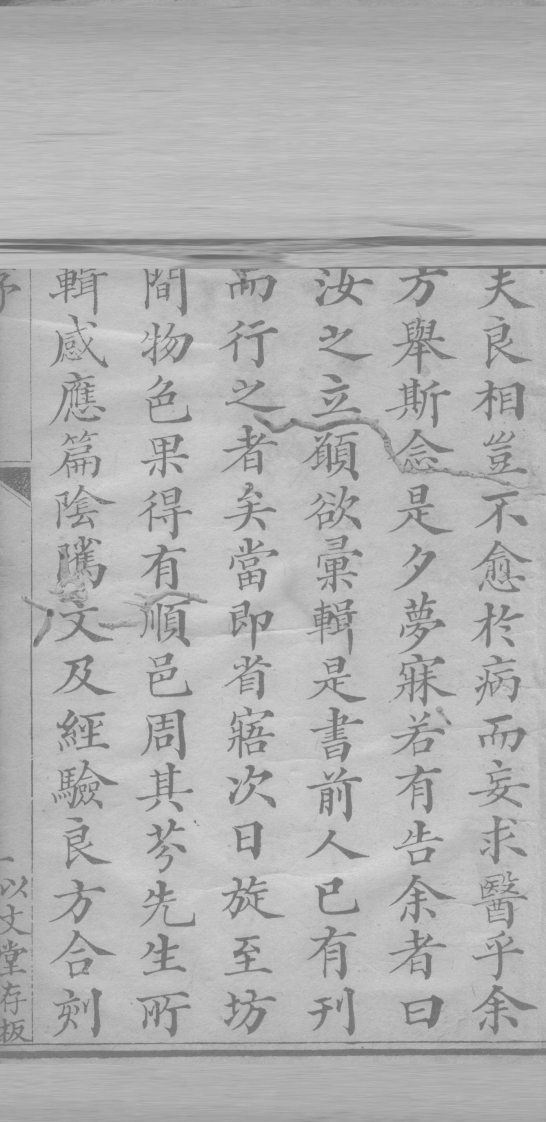 夫良相豈不愈於病而妄求醫乎余
方舉斯念是夕夢寐若有告余者曰
汝之立願欲彙輯是書前人已有刊
而行之者矣當即省寤次日旋至坊
間物色果得有順邑周其芬先生所
輯感應篇陰隲文及經驗良方合刻
序
一以文堂存板